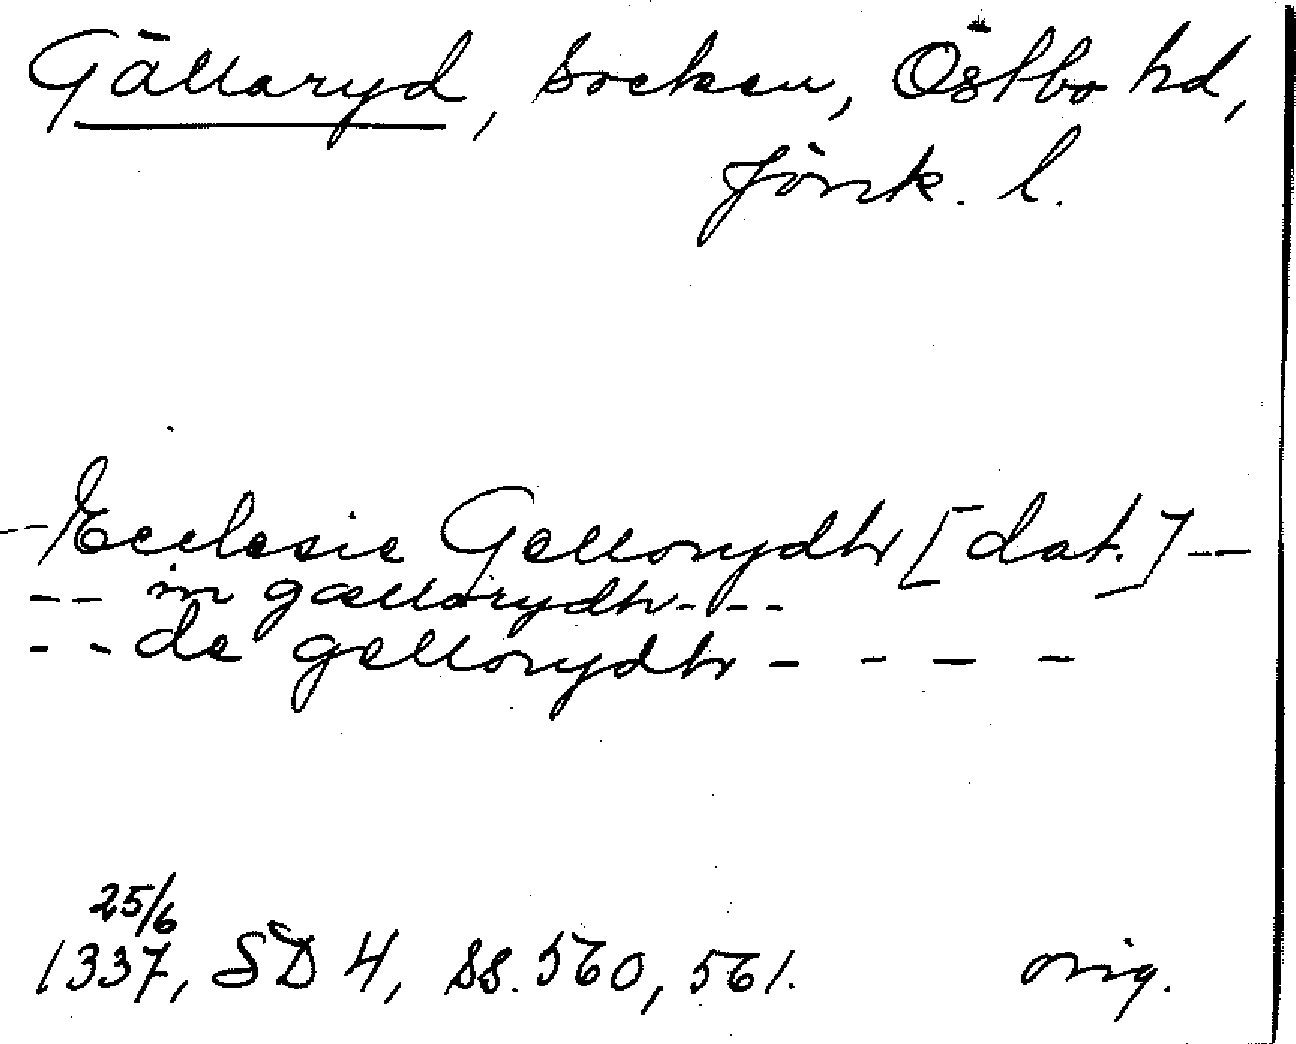 Gällaryd, socken, Östbo hd,
Jönk. l.
-- Ecclesie Gellorydhr [dat.] --
-- in gællorydhr - - -
-- de gellorydhr - - - -
25/6
1337, SD 4, ss. 560, 561. orig.